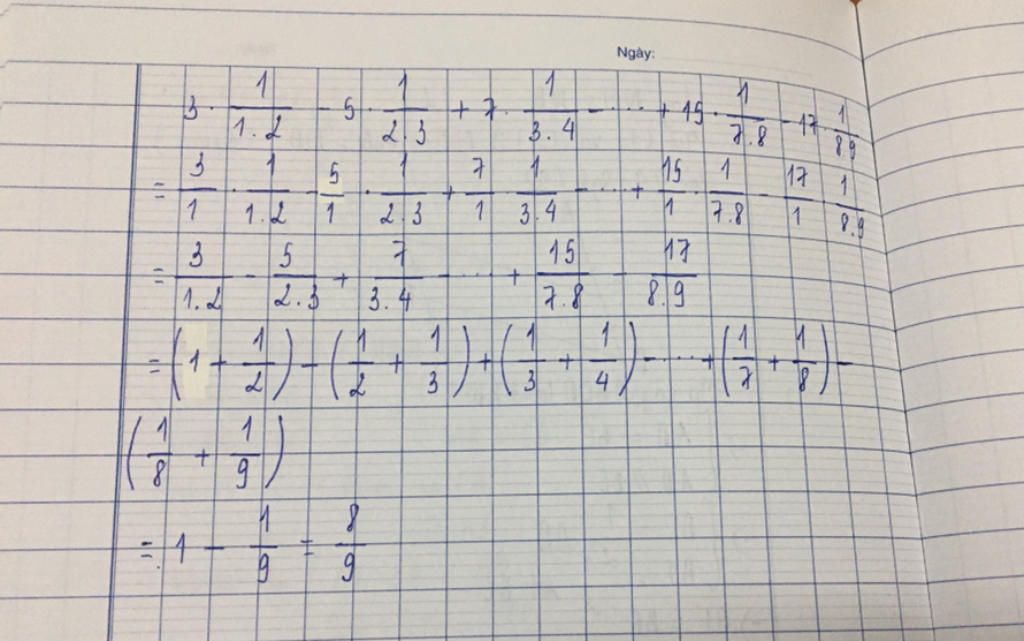 Ngày:
3 · 1/1.2 - 5 · 1/2.3 + 7 · 1/3.4 - ... + 15 · 1/7.8 - 17 · 1/8.9
= 3/1 · 1/1.2 - 5/1 · 1/2.3 + 7/1 · 1/3.4 - ... + 15/1 · 1/7.8 - 17/1 · 1/8.9
= 3/1.2 - 5/2.3 + 7/3.4 - ... + 15/7.8 - 17/8.9
= (1 + 1/2) - (1/2 + 1/3) + (1/3 + 1/4) - ... + (1/7 + 1/8) -
(1/8 + 1/9)
= 1 - 1/9 = 8/9